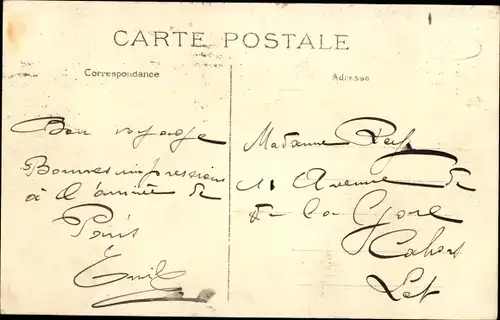 CARTE POSTALE
Correspondance
Bon voyage
Bonnes impressions
à l'arrivée de
Paris
Emile
Adresse
Madame Rey
11 Avenue de
de la Gare
Cahors
Lot